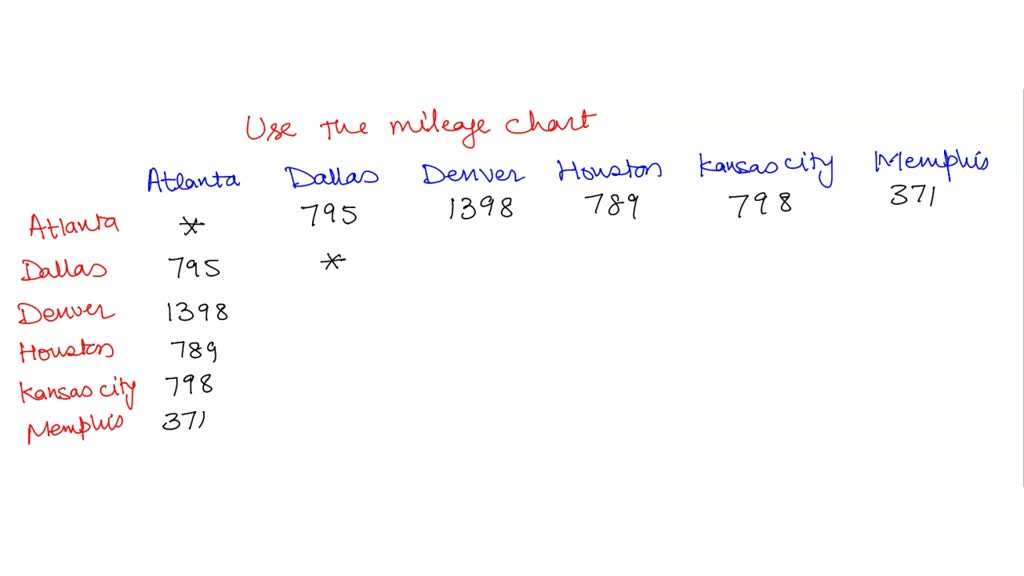 Use the mileage chart
Atlanta Dallas Denver Houston Kansas city Memphis
Atlanta * 795 1398 789 798 371
Dallas 795 *
Denver 1398
Houston 789
Kansas city 798
Memphis 371